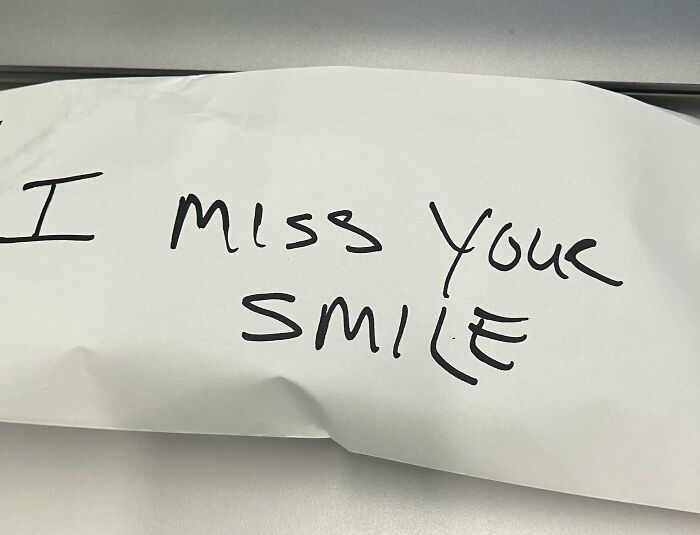 I MISS YOUR
SMILE